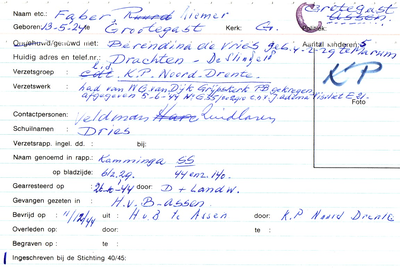 Naam etc.: Faber, Riemer Grootegast
Geboren: 13-5-24 te Grootegast Kerk: Gr. Assen.
Ongehuwd/gehuwd met: Berendina de Vries geb. 4-2-29 te Marum Aantal kinderen: 5
Huidig adres en telef.nr.: Drachten - De Slinger
Verzetsgroep : K.P. Noord-Drente. KP
Verzetswerk : had van W.G. van Dijk Grijpskerk PB gekregen
afgegeven 5-6-44 Foto
Contactpersonen: Veldman Zuidlaren
Schuilnaam : Dries
Verzetsrapp. ingel. dd. : bij:
Naam genoemd in rapp.: Kamminga SS
op bladzijde: 44 en 2.140.
Gearresteerd op : 26-10-44 door: D + Landw.
Gevangen gezeten in : H.v.B-assen.
Bevrijd op : 11/12/44 uit : H.v.B te Assen door: K.P Noord Drente
Overleden op : door: te :
Begraven op : te :
Ingeschreven bij de Stichting 40/45: